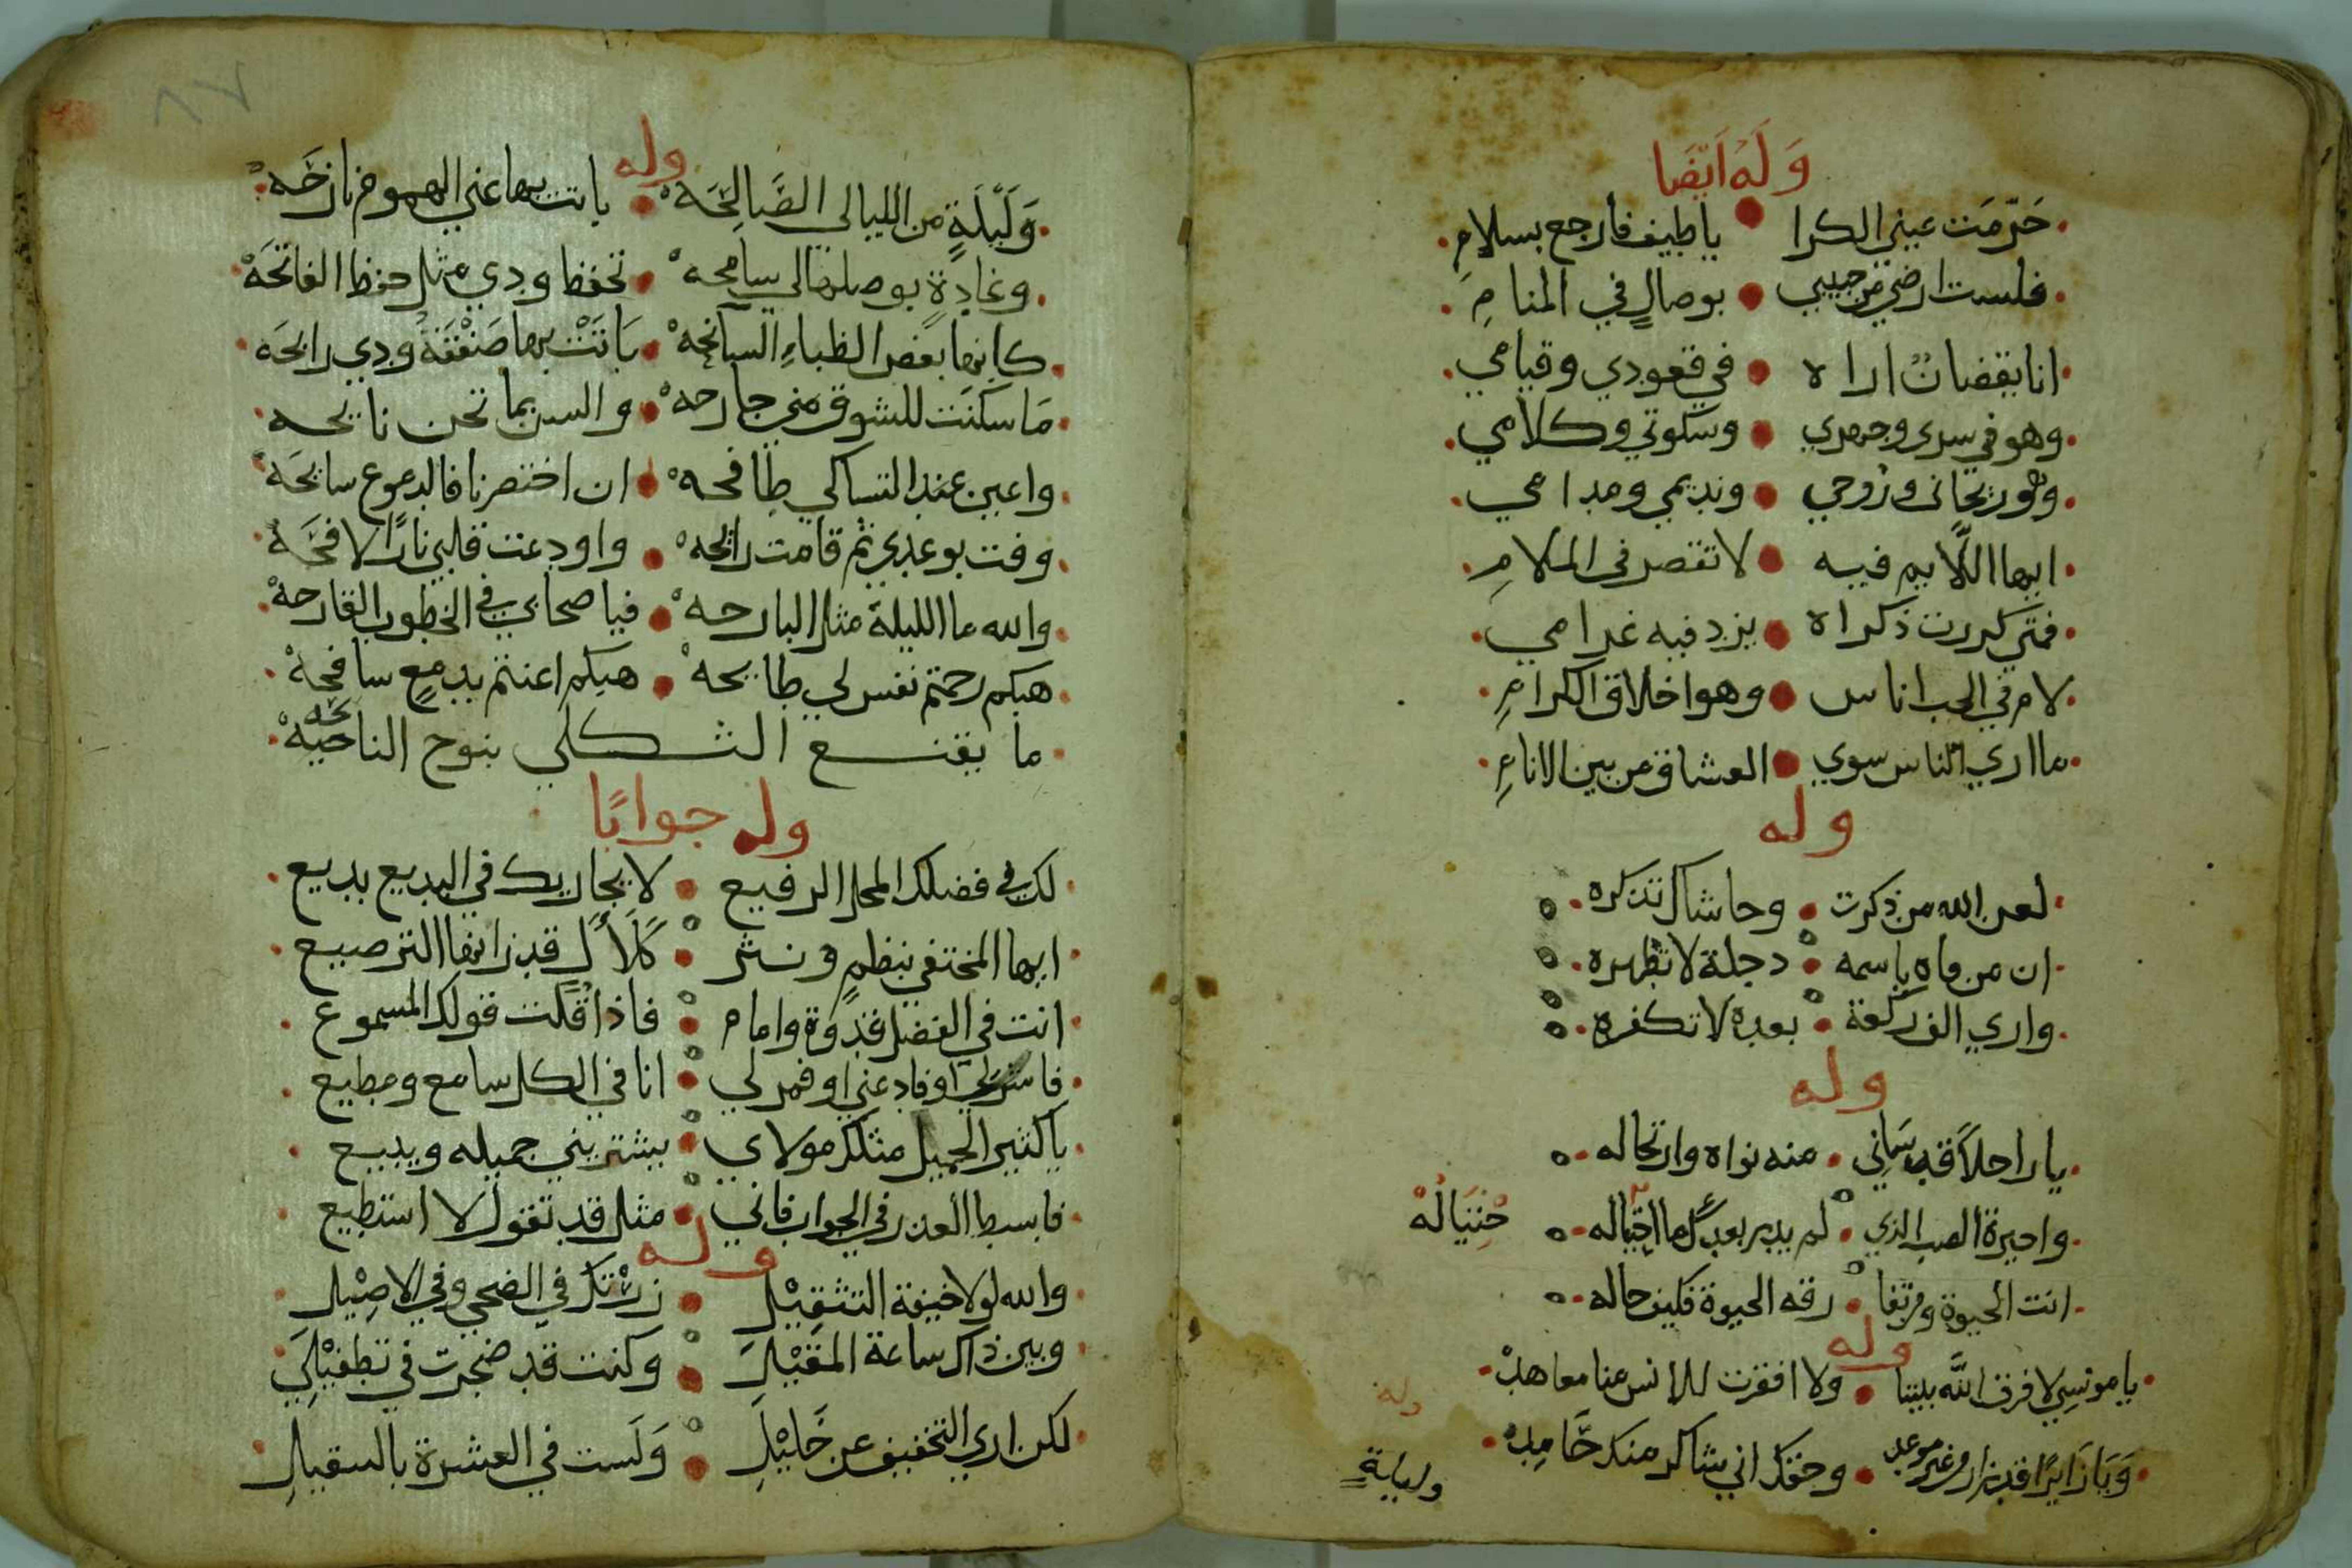 وَلَهُ اَيْضَا
حَرّمَت عيني الكرا • يا طيف فارجع بسلامِ
فلست ارضى من حبيبي • بوصالٍ في المنامِ
انا يقضان اراه • في قعودي وقيامي
وهو في سرى وجهري • وسكوتي وكلامي
وهو ريحانى وروحي • ونديمي ومدامي
ايها اللايم فيه • لا تقصر في الملامِ
فمتى كررت ذكراه • يزد فيه غرامي
لام في الحب اناس • وهو اخلاق الكرامِ
ما ارى الناس سوي • العشاق من بين الانامِ
وله
لعن الله من ذكرت • وحاشاك تذكره
ان من فاه باسمه • دجلة لا تطهره
وارى الف ركعة • بعده لا تكفره
وله
يا راحلاً قد سَاني • منه نواه وارتحاله
واحيرة الصب الذي • لم يدر بعدك ما احتياله
انت الحيوة ومرتفا • رقه الحيوة فكيف حاله
وله
يا مونسي لا فرق الله بيننا • ولا اقفرت للانس منا معاهد
وَيَا زَايرًا قد زار من غير موعد • وحقك اني شاكر منك حَامِد
وليلةٍ
٨٧
وله
وَلَيْلَةٍ من الليالى الصَّالِحَه • باتت بها عني الهموم نازحَه
وغادةٍ بوصلها لي سامحه • تحفظ ودي مثل حفظ الفاتحَه
كانها بعض الظباءِ السانحه • بَاتَتْ بها صَفْقَةُ ودي رابحَه
مَا سكنَت للشوق مني جارحه • والسن بما تحن نايحه
واعين عند التساكي طافحه • ان اختصرنا فالدموع سايحَه
وفت بوعدي ثم قامت رايحه • واودعت قلبي نارًا لافحَه
والله ما الليلة مثل البارحه • فيا صحابي في الخطوب القارحه
هبكم رحمتم نفس لي طايحه • هبكم اعنتم بدمعٍ سافحه
ما يقنع الثكلي بنوح النايحه
وله جوابًا
لك في فضلك المحل الرفيع • لا يجاريك في البديع بديع
ايها المختفي بنظمٍ ونثر • كَلَأَلٍ قد زانها الترصيع
انت في الفضل قدوة وامام • فاذا قلت قولك المسموع
فاشر لي او فادعني او فمر لي • انا في الكل سامع ومطيع
يا كثير الجميل مثلك مولاي • يشتريني جميله ويبيع
فابسط العذر في الجواب فاني • مثل قد تقول لا استطيع
وله
والله لولا خيفة التثقِيْلِ • زُرْتك في الضحى وفي الاصِيْلِ
وبين ذاك ساعة المقِيْلِ • وكنت قد ضجرت في تطفيْلي
لكن ارى التخفيف عن خَليْلي • وَلَست في العشرة بالسقيلِ